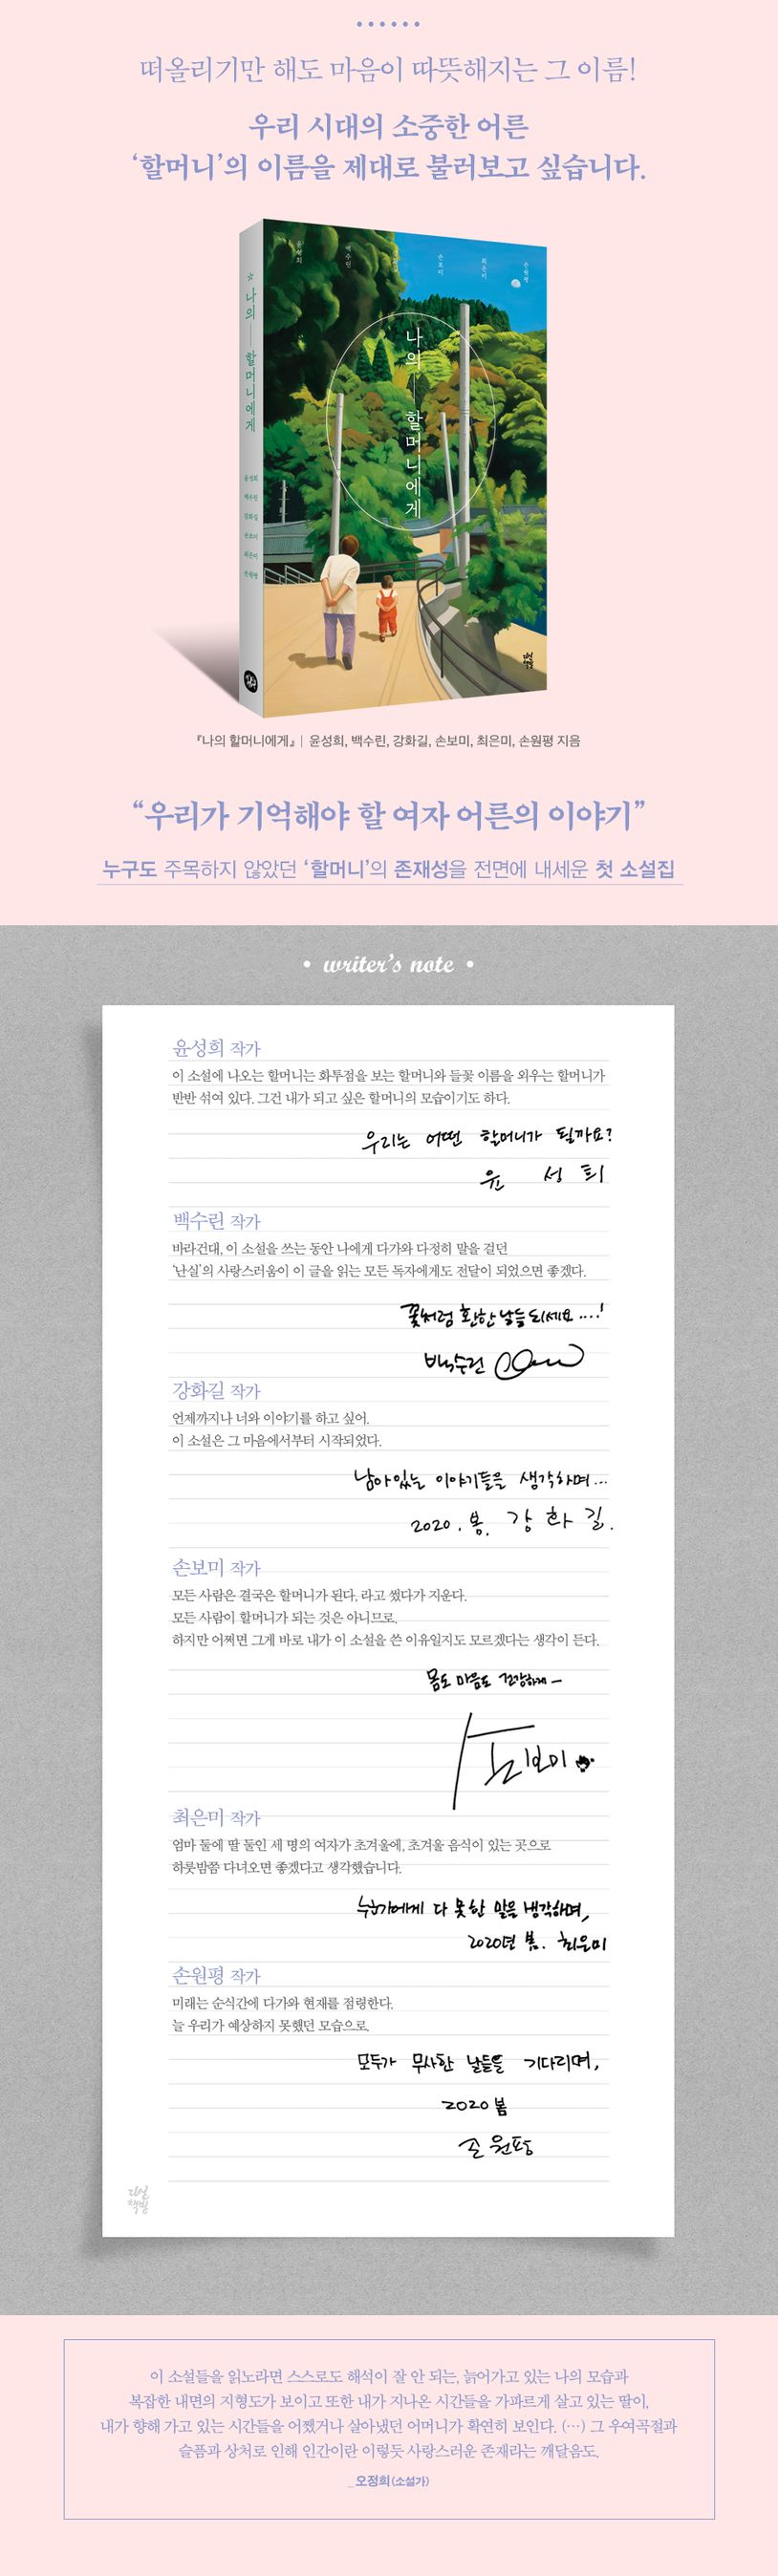 떠올리기만 해도 마음이 따뜻해지는 그 이름!
우리 시대의 소중한 어른
‘할머니’의 이름을 제대로 불러보고 싶습니다.
윤성희 백수린 손보미 최은미 손원평
나의 할머니에게
나의 할머니에게
윤성희
백수린
강화길
손보미
최은미
손원평
다산책방
『나의 할머니에게』 | 윤성희, 백수린, 강화길, 손보미, 최은미, 손원평 지음
“우리가 기억해야 할 여자 어른의 이야기”
누구도 주목하지 않았던 ‘할머니’의 존재성을 전면에 내세운 첫 소설집
• writer’s note •
윤성희 작가
이 소설에 나오는 할머니는 화투점을 보는 할머니와 들꽃 이름을 외우는 할머니가
반반 섞여 있다. 그건 내가 되고 싶은 할머니의 모습이기도 하다.
우리는 어떤 할머니가 될까요?
윤 성 희
백수린 작가
바라건대, 이 소설을 쓰는 동안 나에게 다가와 다정히 말을 걸던
‘난실’의 사랑스러움이 이 글을 읽는 모든 독자에게도 전달이 되었으면 좋겠다.
꽃처럼 환한 날들 되세요....!
백수린
강화길 작가
언제까지나 너와 이야기를 하고 싶어.
이 소설은 그 마음에서부터 시작되었다.
남아있는 이야기들을 생각하며...
2020. 봄. 강 화 길.
손보미 작가
모든 사람은 결국은 할머니가 된다, 라고 썼다가 지운다.
모든 사람이 할머니가 되는 것은 아니므로.
하지만 어쩌면 그게 바로 내가 이 소설을 쓴 이유일지도 모르겠다는 생각이 든다.
몸도 마음도 건강하게 –
손보미
최은미 작가
엄마 둘에 딸 둘인 세 명의 여자가 초겨울에, 초겨울 음식이 있는 곳으로
하룻밤쯤 다녀오면 좋겠다고 생각했습니다.
누군가에게 다 못한 말을 생각하며,
2020년 봄. 최은미
손원평 작가
미래는 순식간에 다가와 현재를 점령한다.
늘 우리가 예상하지 못했던 모습으로.
모두가 무사한 날들을 기다리며,
2020 봄
손원평
다산책방
이 소설들을 읽노라면 스스로도 해석이 잘 안 되는, 늙어가고 있는 나의 모습과
복잡한 내면의 지형도가 보이고 또한 내가 지나온 시간들을 가파르게 살고 있는 딸이,
내가 향해 가고 있는 시간들을 어쨌거나 살아냈던 어머니가 확연히 보인다. (…) 그 우여곡절과
슬픔과 상처로 인해 인간이란 이렇듯 사랑스러운 존재라는 깨달음도.
_오정희(소설가)